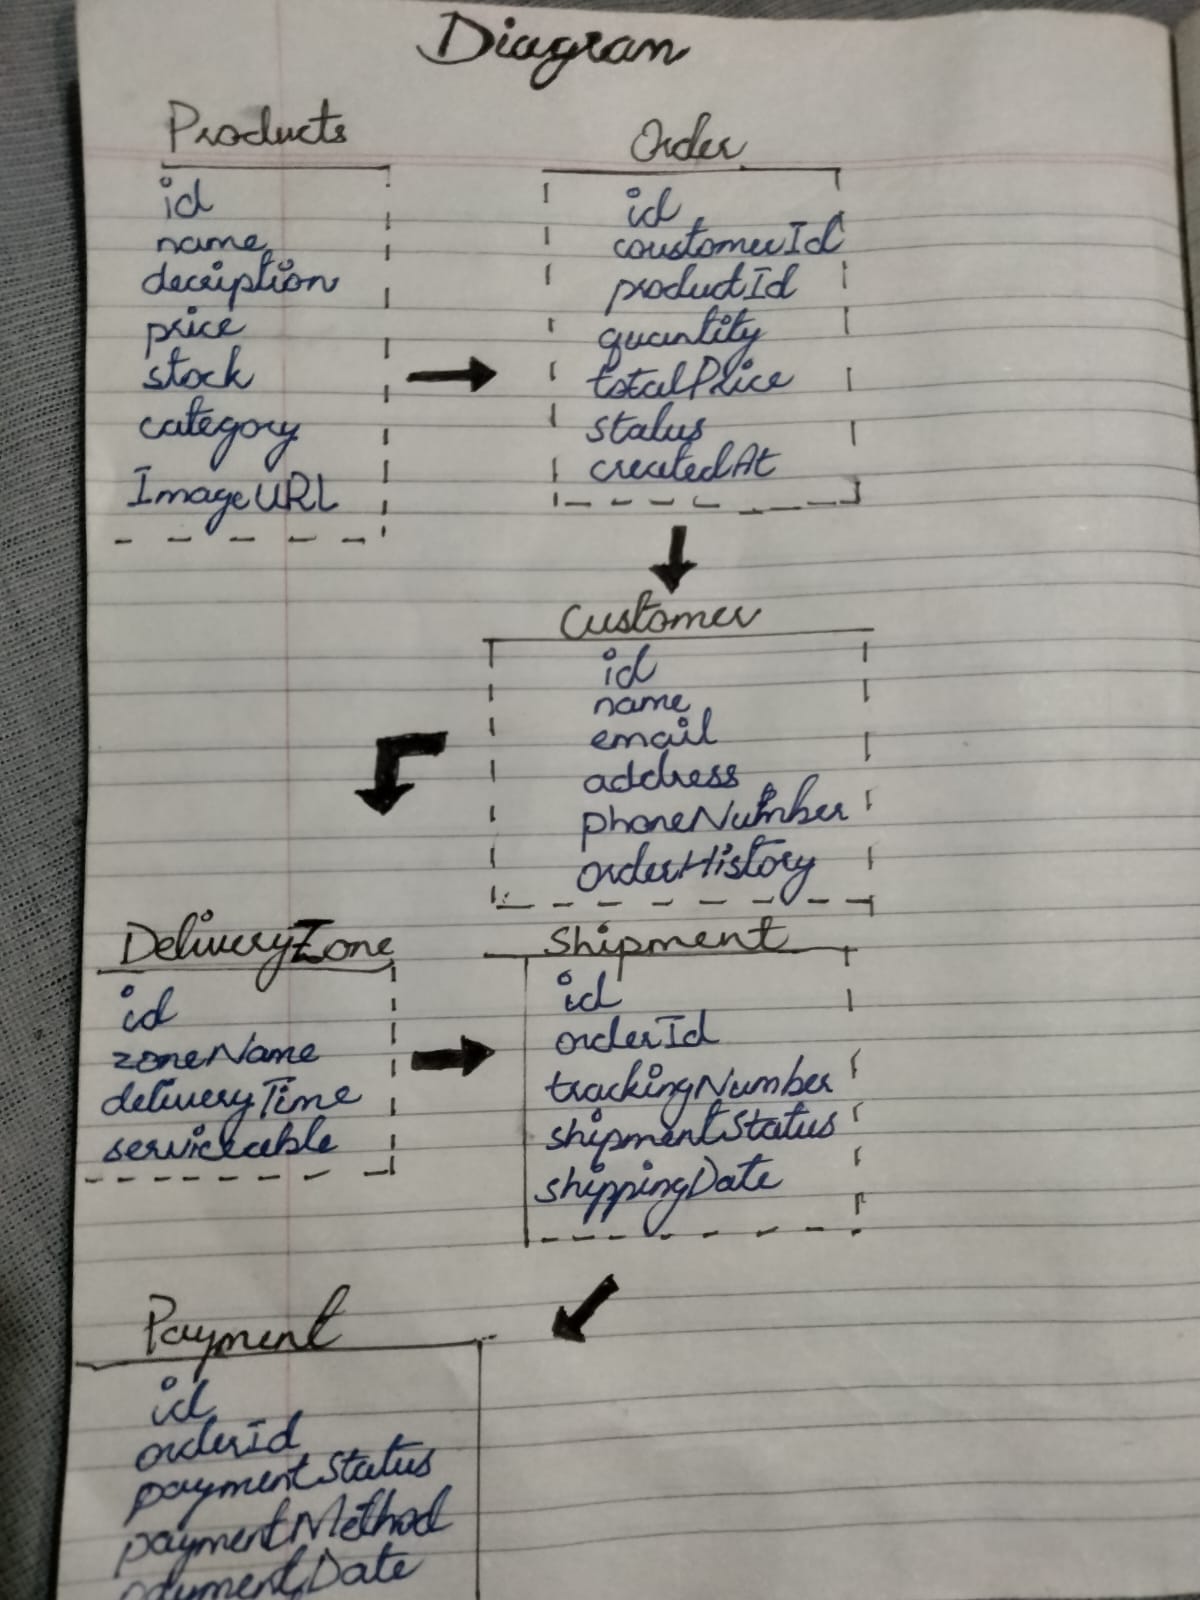 Diagram
Products
id
name
deceiption
price
stock
category
ImageURL
Order
id
coustomerId
productId
quantity
totalPrice
status
createdAt
Customer
id
name
email
address
phoneNumber
orderHistory
DeliveryZone
id
zoneName
deliveryTime
serviceable
Shipment
id
orderId
trackingNumber
shipmentStatus
shippingDate
Payment
id
orderId
paymentStatus
paymentMethod
paymentDate